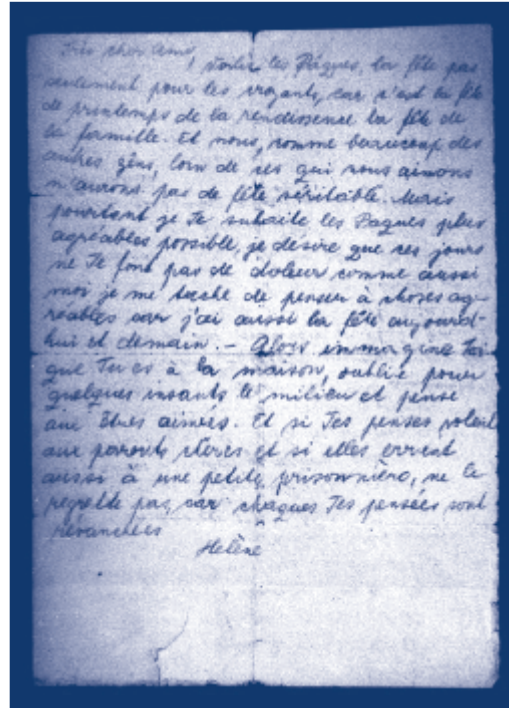 Très cher Ami,
voilà les Pâques, la fête pas
seulement pour les croyants, car c'est la fête
de printemps de la renaissence la fête de
la famille. Et nous, comme beaucoup des
autres gens, loin de ces qui nous aimons
n'aurons pas de fête véritable. Mais
pourtant je te suhaite les Paques plus
agréables possible, je desire que ces jours
ne Te font pas de doleur comme aussi
moi je me tache de penser à choses ag-
reables car j'ai aussi la fête aujourd-
hui et demain. – Alors immargine toi
que Tu es à la maison, oublie pour
quelques insants le milieu et pense
aux êtres aimées. Et si Tes penses volent
aux parents et si elles errent
aussi à une petite prisonnière, ne le
regrette pas, car chaques Tes pensées sont
Helène